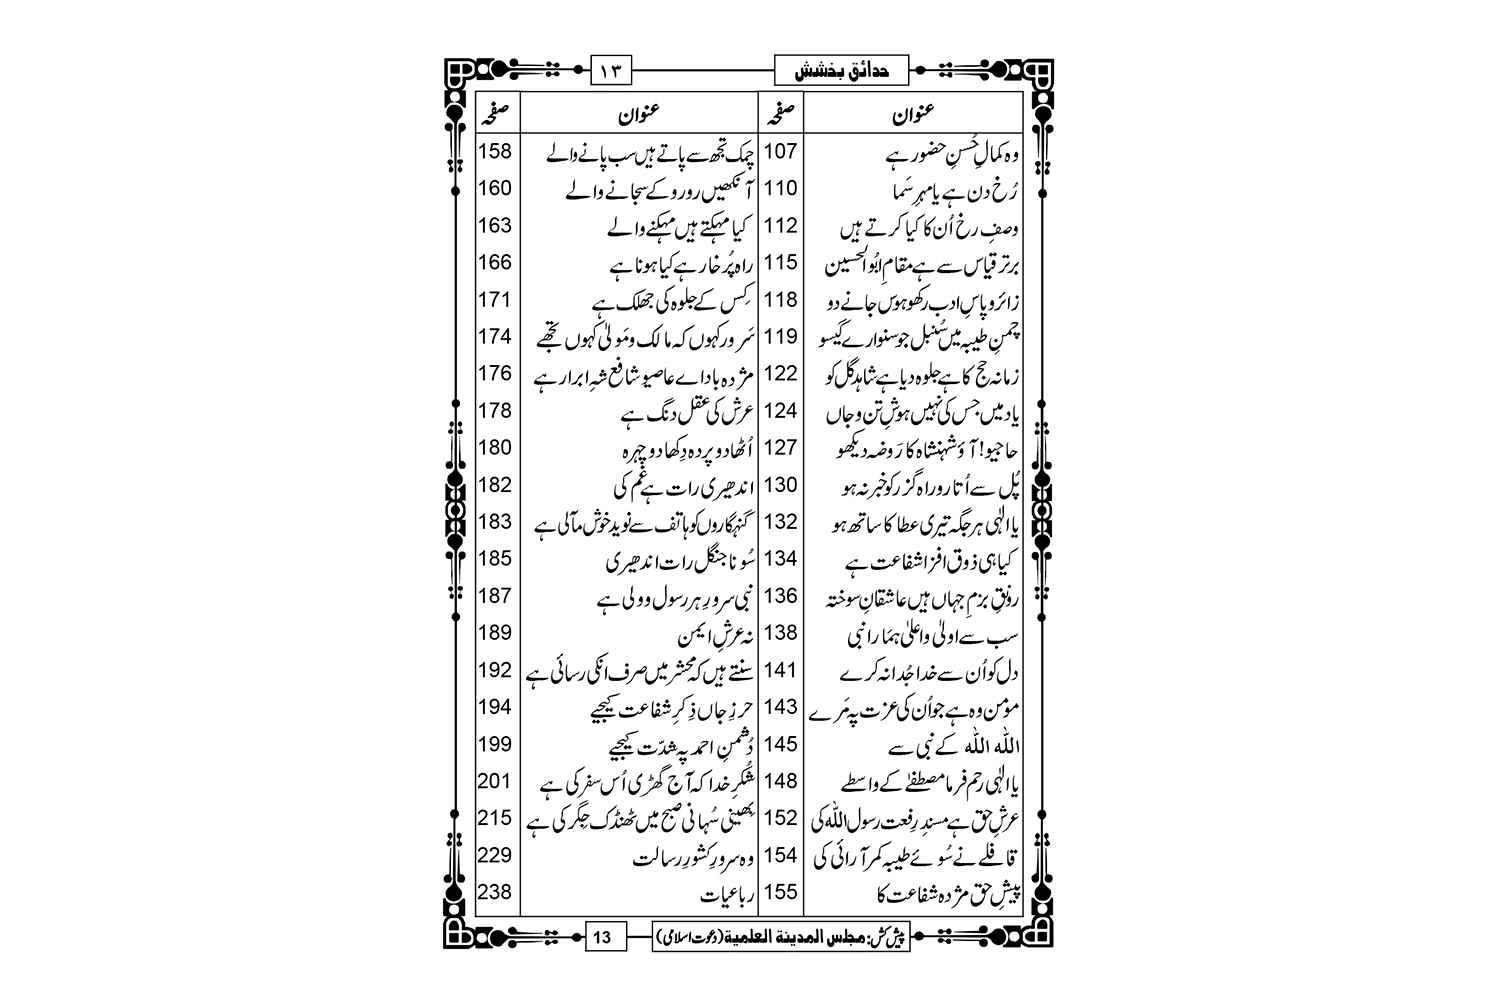 حدائق بخشش ۱۳
عنوان صفحہ عنوان صفحہ
وہ کمالِ حُسنِ حضور ہے 107 چمک تجھ سے پاتے ہیں سب پانے والے 158
رُخ دن ہے یا مہرِ سَما 110 آنکھیں رو رو کے سجانے والے 160
وصفِ رخ اُن کا کیا کرتے ہیں 112 کیا مہکتے ہیں مہکنے والے 163
برتر قیاس سے ہے مقامِ ابُوالحسین 115 راہ پُر خار ہے کیا ہونا ہے 166
زائرو پاسِ ادب رکھو ہوس جانے دو 118 کِس کے جلوہ کی جھلک ہے 171
چمنِ طیبہ میں سُنبل جو سنوارے گیسو 119 سَرور کہوں کہ مالک و مَولیٰ کہوں تجھے 174
زمانہ حج کا ہے جلوہ دیا ہے شاہد گل کو 122 مژدہ باد اے عاصیو شافع شہِ ابرار ہے 176
یاد میں جس کی نہیں ہوشِ تن و جاں 124 عرش کی عقل دنگ ہے 178
حاجیو! آؤ شہنشاہ کا رَوضہ دیکھو 127 اُٹھا دو پردہ دِکھا دو چہرہ 180
پُل سے اُتارو راہ گزر کو خبر نہ ہو 130 اندھیری رات ہے غم کی 182
یا الٰہی ہر جگہ تیری عطا کا ساتھ ہو 132 گنہگاروں کو ہاتف سے نوید خوش مآلی ہے 183
کیا ہی ذوق افزا شفاعت ہے 134 سُونا جنگل رات اندھیری 185
رونقِ بزمِ جہاں ہیں عاشقانِ سوختہ 136 نبی سرورِ ہر رسول و ولی ہے 187
سب سے اولیٰ و اعلیٰ ہمَارا نبی 138 نہ عرشِ ایمن 189
دل کو اُن سے خدا جُدا نہ کرے 141 سنتے ہیں کہ محشر میں صرف انکی رسائی ہے 192
مؤمن وہ ہے جو اُن کی عزت پہ مَرے 143 حرزِ جاں ذِکرِ شفاعت کیجیے 194
اللہ اللہ کے نبی سے 145 دُشمنِ احمد پہ شدّت کیجیے 199
یا الٰہی رحم فرما مصطفٰے کے واسطے 148 شُکرِ خدا کہ آج گھڑی اُس سفر کی ہے 201
عرشِ حق ہے مسندِ رِفعت رسول اللہ کی 152 بھینی سُہانی صبح میں ٹھنڈک جِگر کی ہے 215
قافلے نے سُوئے طیبہ کمر آرائی کی 154 وہ سرورِ کشورِ رسالت 229
پیشِ حق مژدہ شفاعت کا 155 رباعیات 238
پیش کش: مجلس المدینة العلمیة (دعوت اسلامی) 13